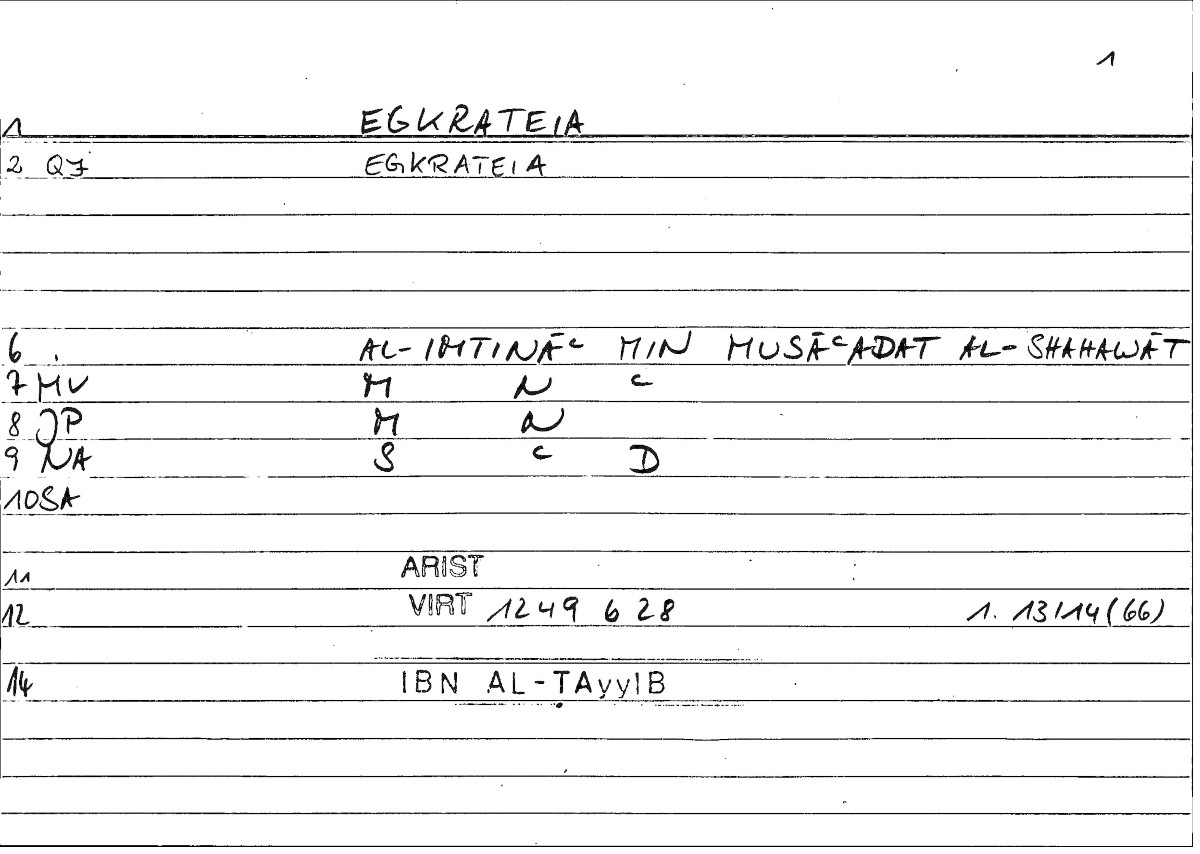 1
1 EGKRATEIA
2 QJ EGKRATEIA
6 . AL-IMTINĀC MIN MUSĀCADAT AL-SHAHAWĀT
7 MV M N C
8 JP M N
9 NA S C D
10 SA
11 ARIST
12 VIRT 1249 6 28 1. 13/14(66)
14 IBN AL-ṬAyyIB